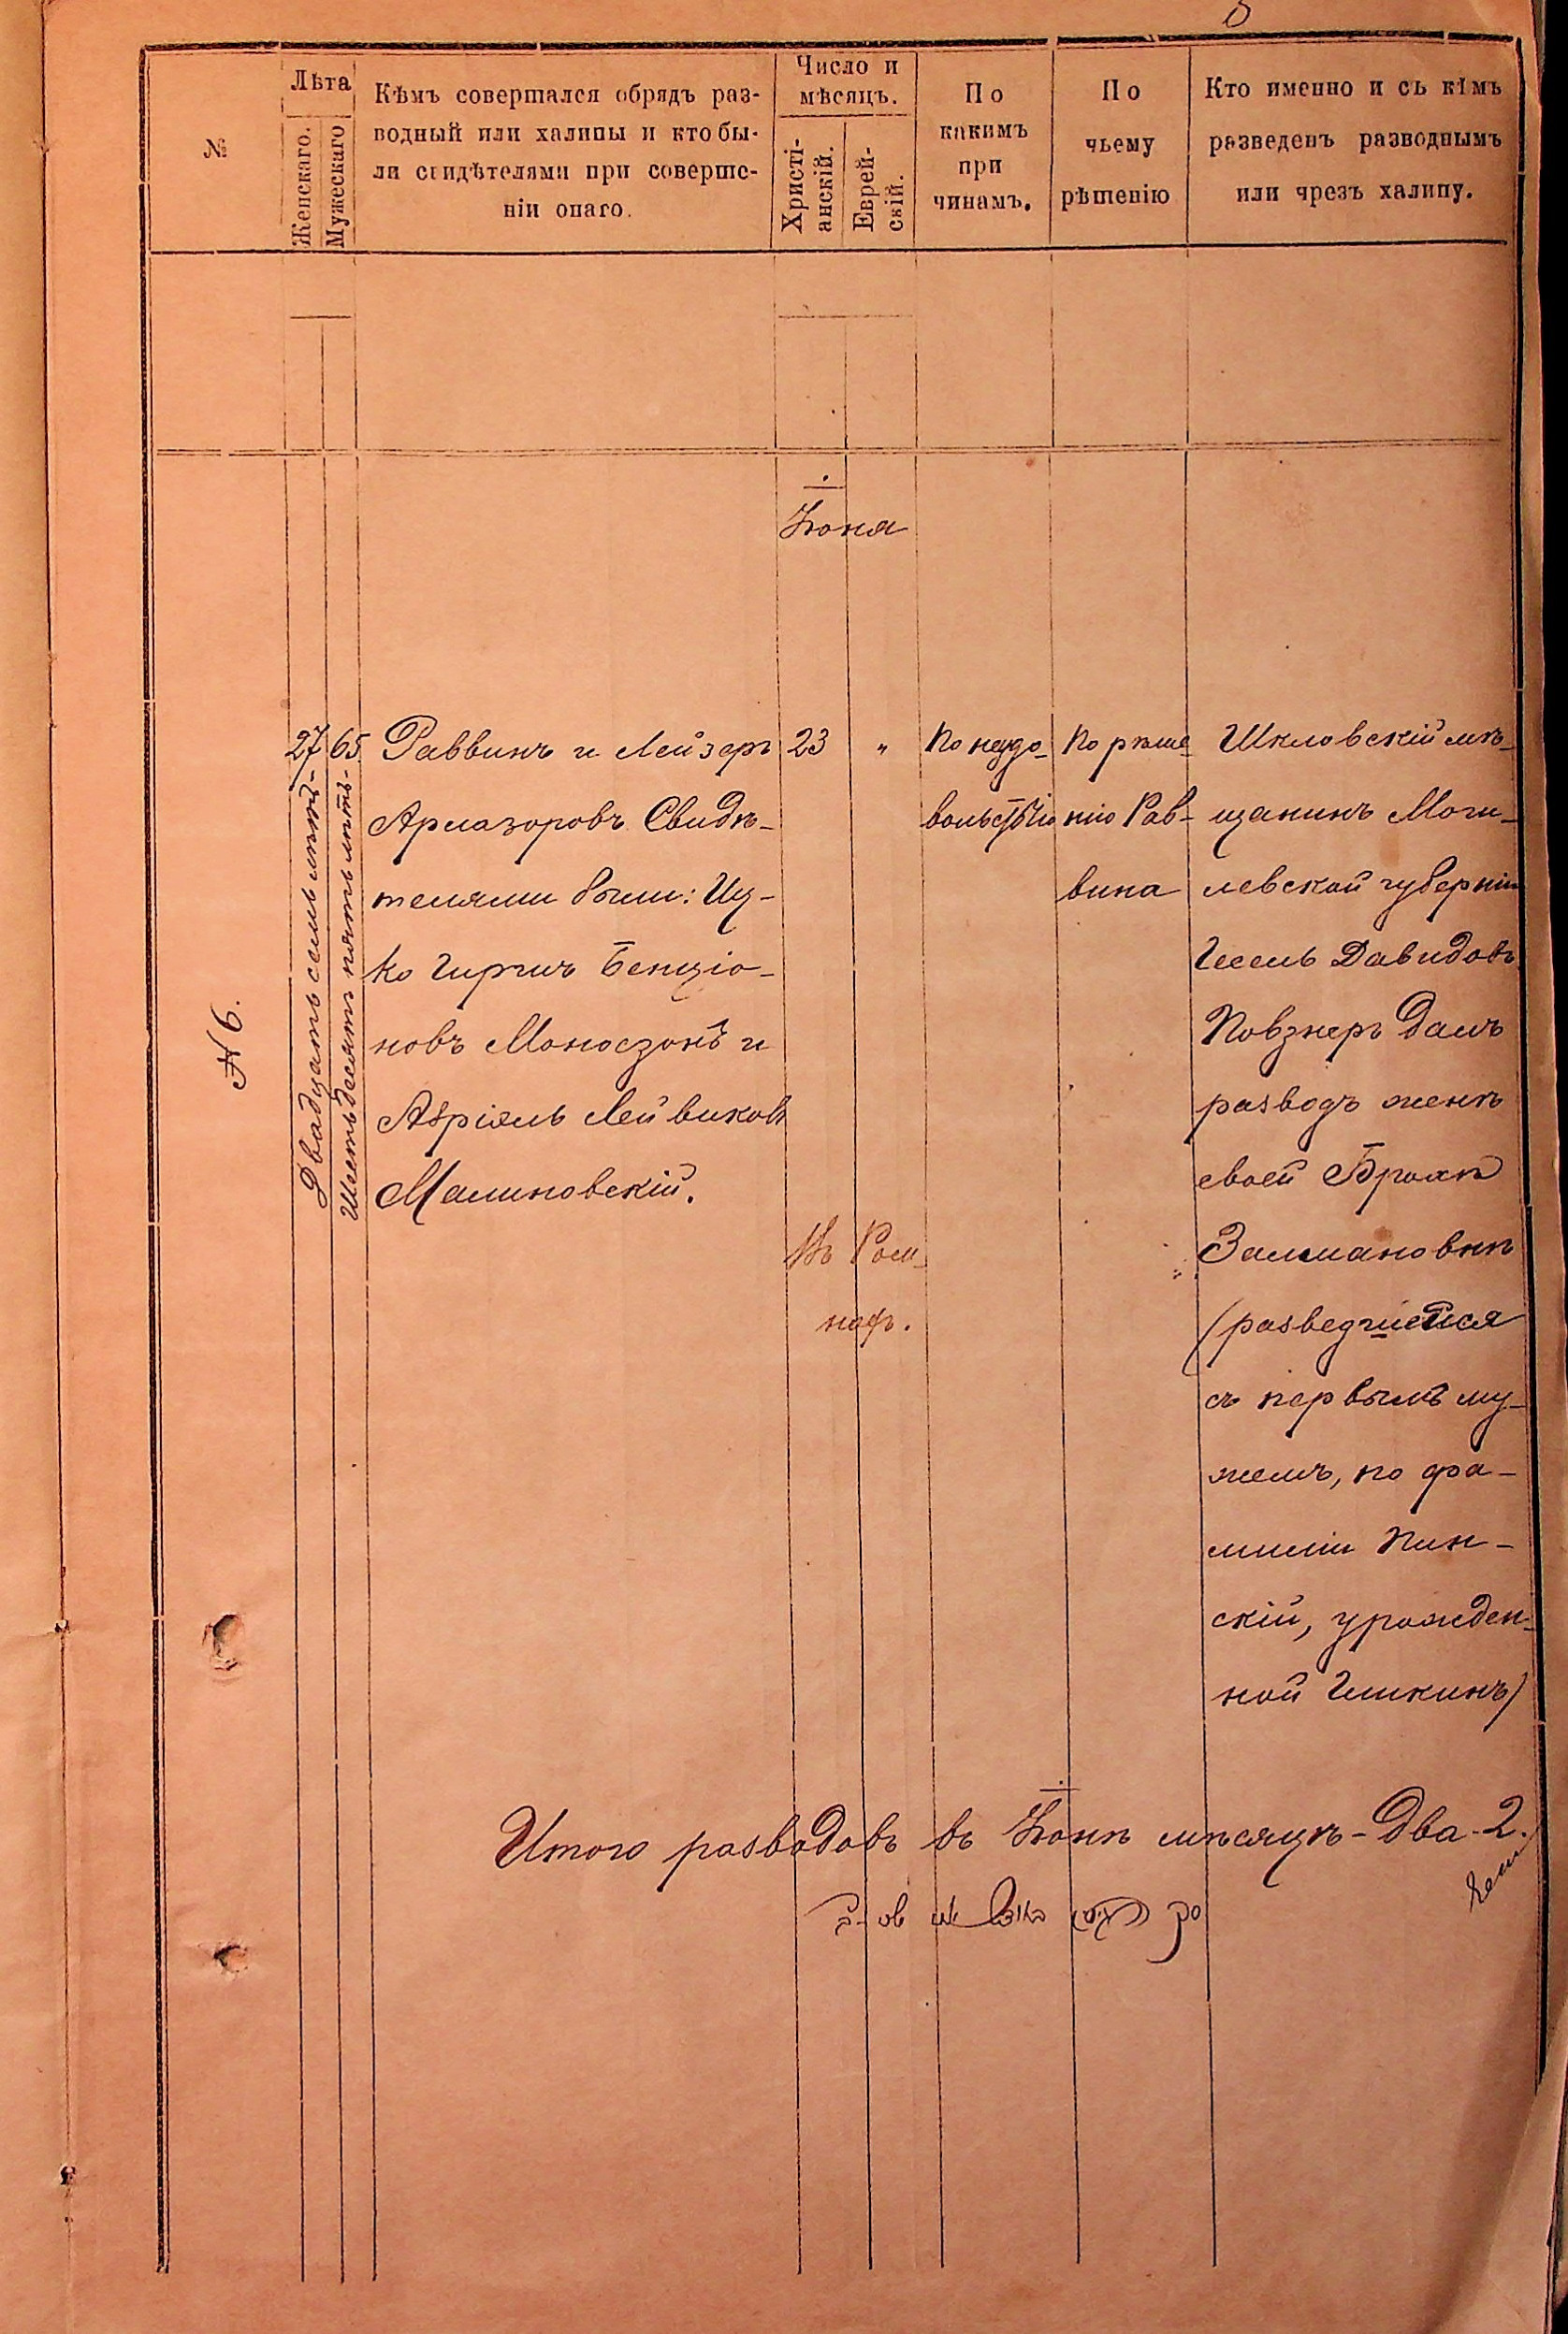 №
Лѣта
Женскаго.
Мужескаго
Кѣмъ совершался обрядъ раз-
водный или халицы и кто бы-
ли свидѣтелями при соверше-
ніи онаго.
Число и
мѣсяцъ.
Христі-
анскій.
Еврей-
скій.
По
какимъ
при
чинамъ.
По
чьему
рѣшенію
Кто именно и съ кѣмъ
разведенъ разводнымъ
или чрезъ халицу.
Іюня
№ 6.
27
Двадцать семь лѣтъ
65
Шестьдесятъ пять лѣтъ
Раввинъ и Лейзеръ
Свидѣ-
телями были: Иц-
ко Гиршъ Бенціо-
новъ Моносзонъ и
Азріель Лейвиковъ
Малиновскій.
23
"
Въ Ром-
нахъ.
По неудо-
вольствію
По рѣше
нію Рав-
вина
Шкловскій мѣ-
щанинъ Моги-
левской губерніи
Гесель Давидовъ
Повзнеръ далъ
разводъ женѣ
своей Брохѣ
Залмановнѣ
(разведшейся
съ первымъ му-
жемъ, по фа-
миліи Пин-
скій, урожден-
ной Гишкинъ)
Итого разводовъ въ Іюнѣ мѣсяцѣ - Два - 2.